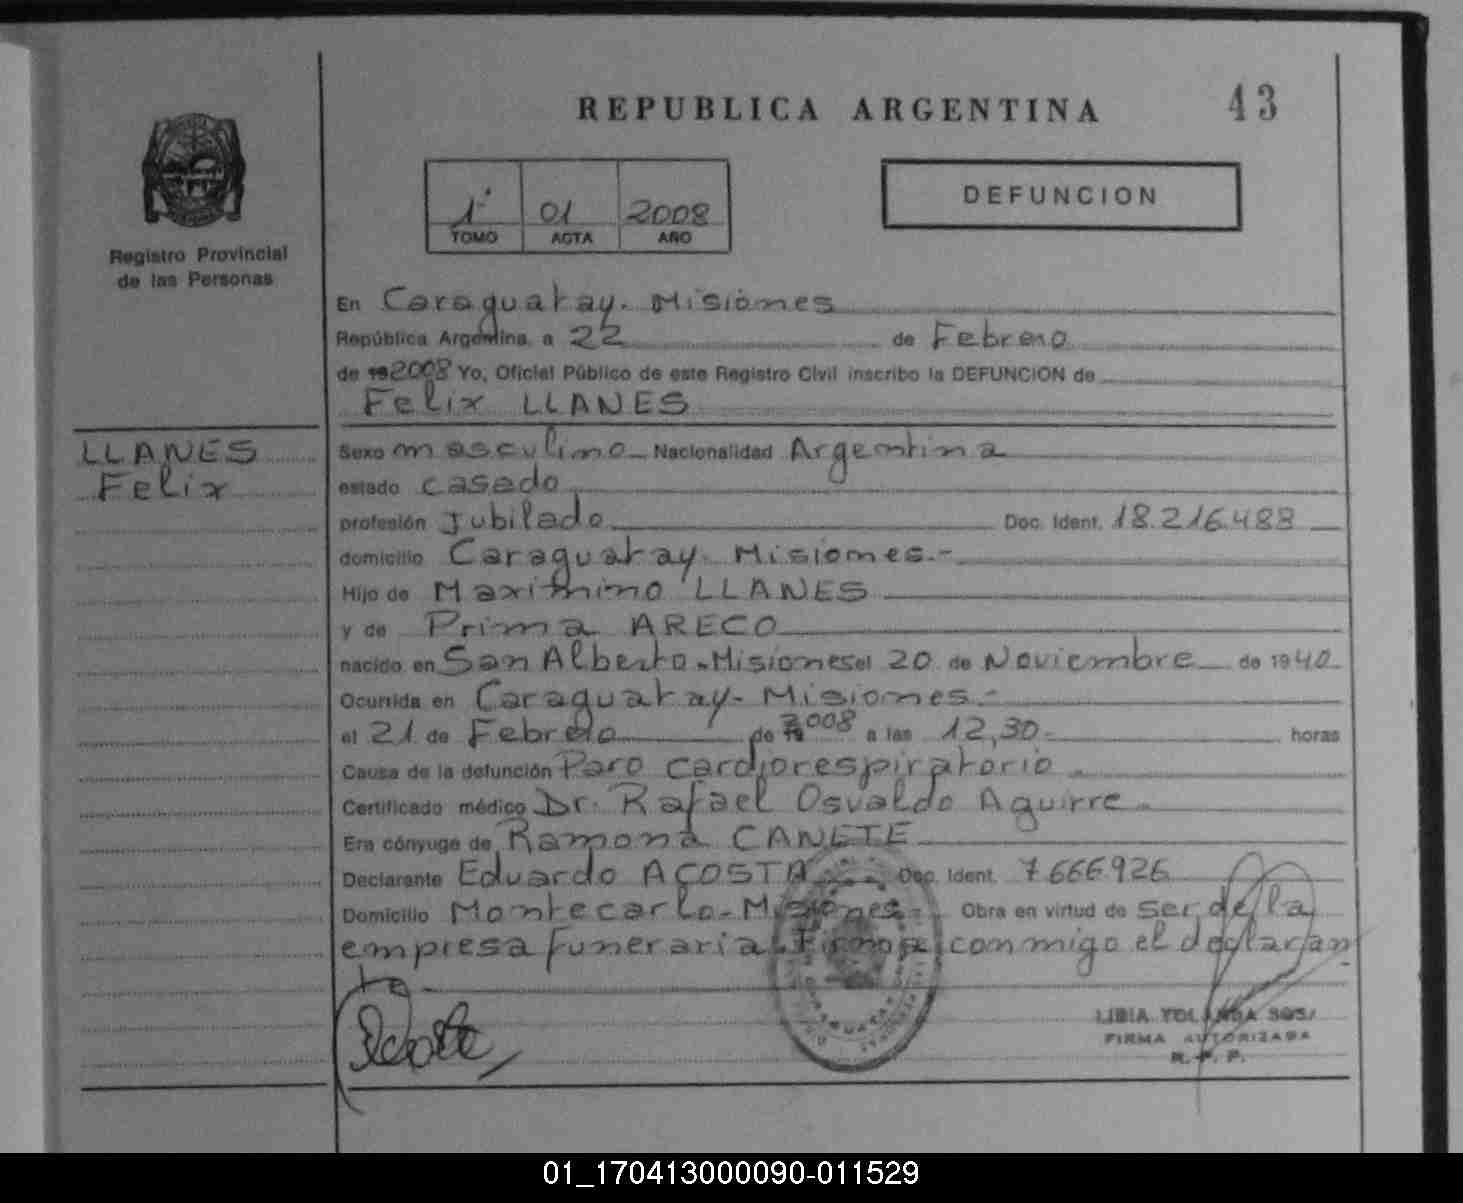 REPUBLICA ARGENTINA 43
Registro Provincial
de las Personas
1º 01 2008
TOMO ACTA AÑO
DEFUNCION
En Caraguatay. Misiones
República Argentina, a 22 de Febrero
de 19 2008 Yo, Oficial Público de este Registro Civil inscribo la DEFUNCION de
Felix LLANES
LLANES
Felix
Sexo masculino Nacionalidad Argentina
estado casado
profesión Jubilado Doc. Ident. 18.216.488
domicilio Caraguatay - Misiones.-
Hijo de Maximino LLANES
y de Prima ARECO
nacido en San Alberto - Misiones el 20 de Noviembre de 1940
Ocurrida en Caraguatay - Misiones.-
el 21 de Febrero de 19 2008 a las 12,30.- horas
Causa de la defunción Paro cardiorespiratorio.
Certificado médico Dr. Rafael Osvaldo Aguirre.
Era cónyuge de Ramona CANETE
Declarante Eduardo ACOSTA Doc. Ident. 7666926
Domicilio Montecarlo - Misiones.- Obra en virtud de ser de la
empresa funeraria. Firma conmigo el declaran
te.
LIBIA YOLANDA SOSA
FIRMA AUTORIZADA
R. P. P.
01_170413000090-011529